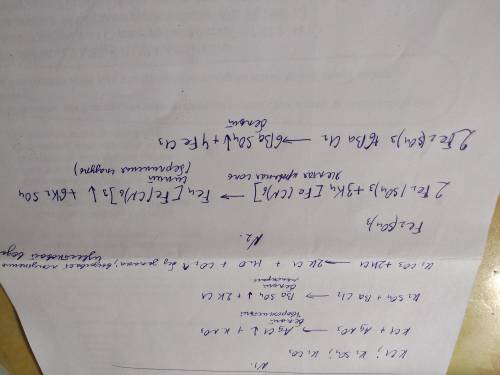 N1.
KCl; K2SO4; K2CO3
KCl + AgNO3 → AgCl↓ + KNO3
белый творожистый
K2SO4 + BaCl2 → BaSO4↓ + 2KCl
белый
K2CO3 + 2HCl → 2KCl + H2O + CO2↑ без запаха, вызывает помутнение известковой воды
N2.
Fe2(SO4)3
2Fe2(SO4)3 + 3K4[Fe(CN)6] → Fe4[Fe(CN)6]3↓ + 6K2SO4
желтая кровяная соль синий (берлинская лазурь)
2Fe2(SO4)3 + 6BaCl2 → 6BaSO4↓ + 4FeCl3
белый